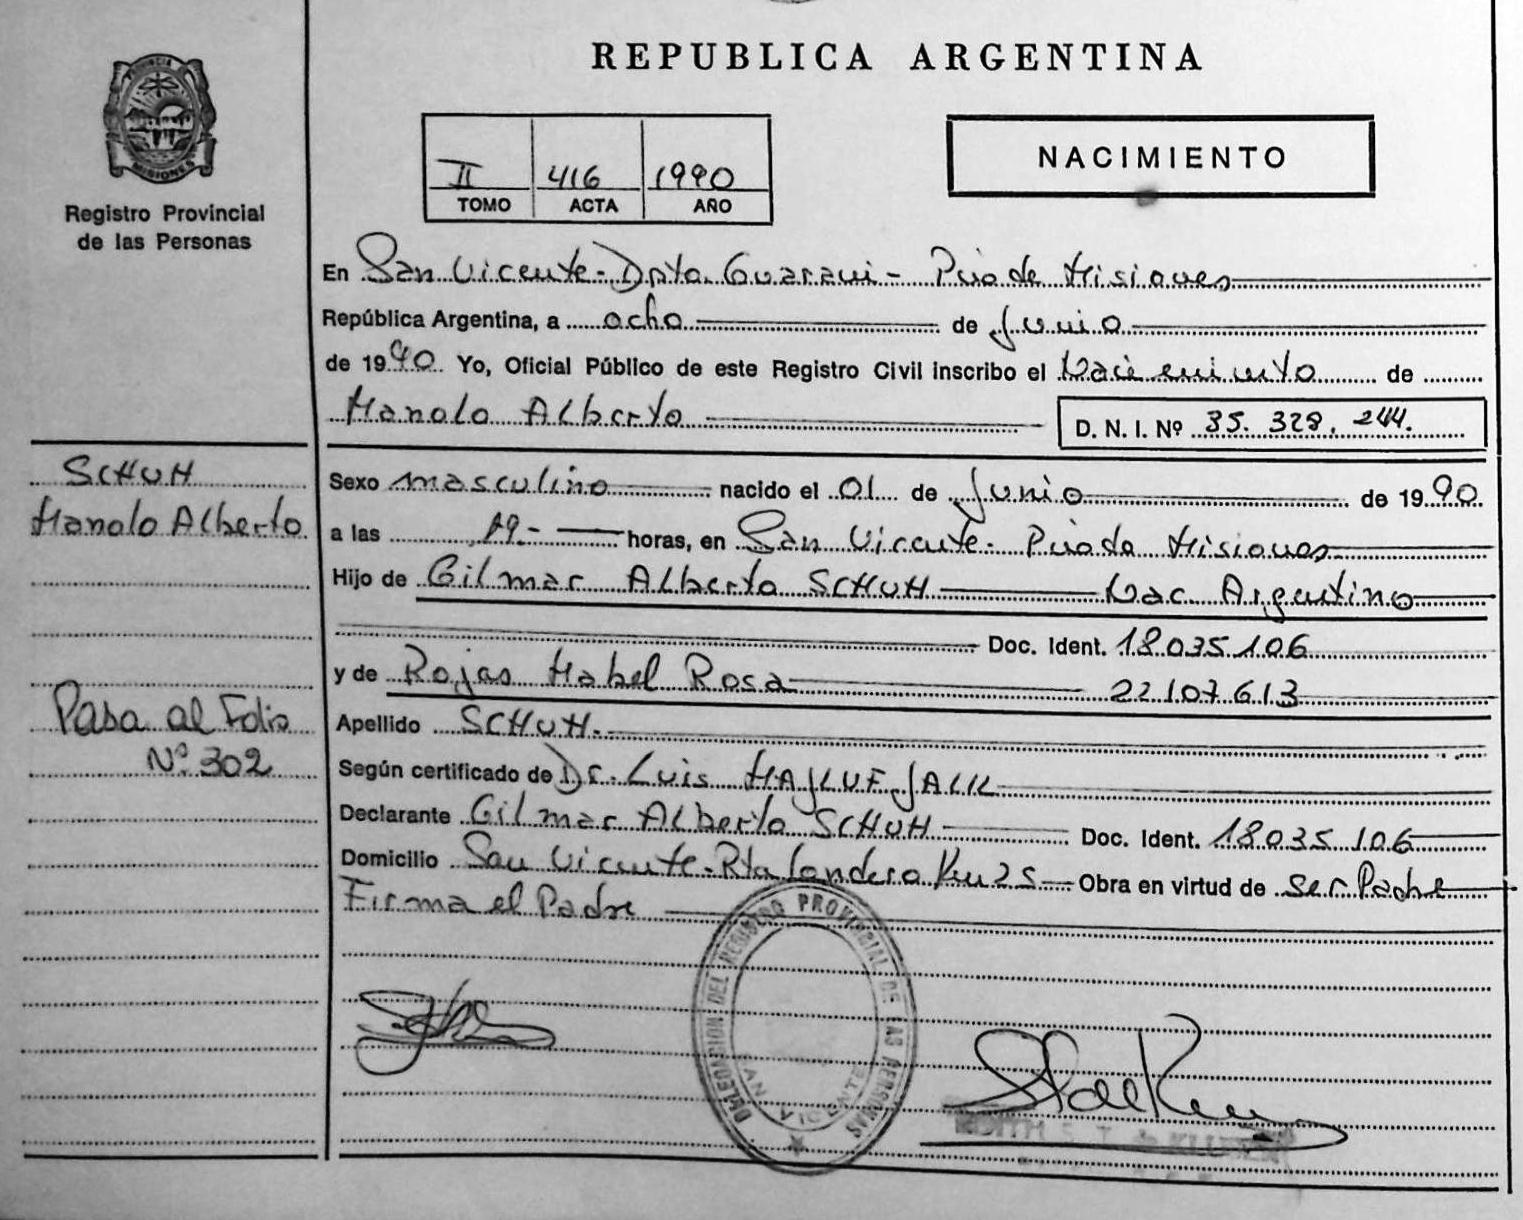 REPUBLICA ARGENTINA
PROVINCIA
MISIONES
Registro Provincial
de las Personas
II 416 1990
TOMO ACTA AÑO
NACIMIENTO
En San Vicente - Dpto. Guarani - Pcia de Misiones
República Argentina, a ocho de Junio
de 1990 Yo, Oficial Público de este Registro Civil inscribo el Nacimiento de
Manolo Alberto
D. N. I. Nº 35. 328. 244.
SCHUH
Manolo Alberto
Pasa al Folio
Nº 302
Sexo masculino nacido el 01 de Junio de 1990
a las 19- horas, en San Vicente - Pcia de Misiones
Hijo de Gilmar Alberto SCHUH Nac. Argentino
Doc. Ident. 18.035.106
y de Rojas Mabel Rosa 22.107.613
Apellido SCHUH.
Según certificado de Dr. Luis MAJLUF JALIL
Declarante Gilmar Alberto SCHUH Doc. Ident. 18.035.106
Domicilio San Vicente - Rta Londero Km 25 Obra en virtud de ser Padre
Firma el Padre
DELEGACION DEL REGISTRO PROVINCIAL DE LAS PERSONAS
SAN VICENTE